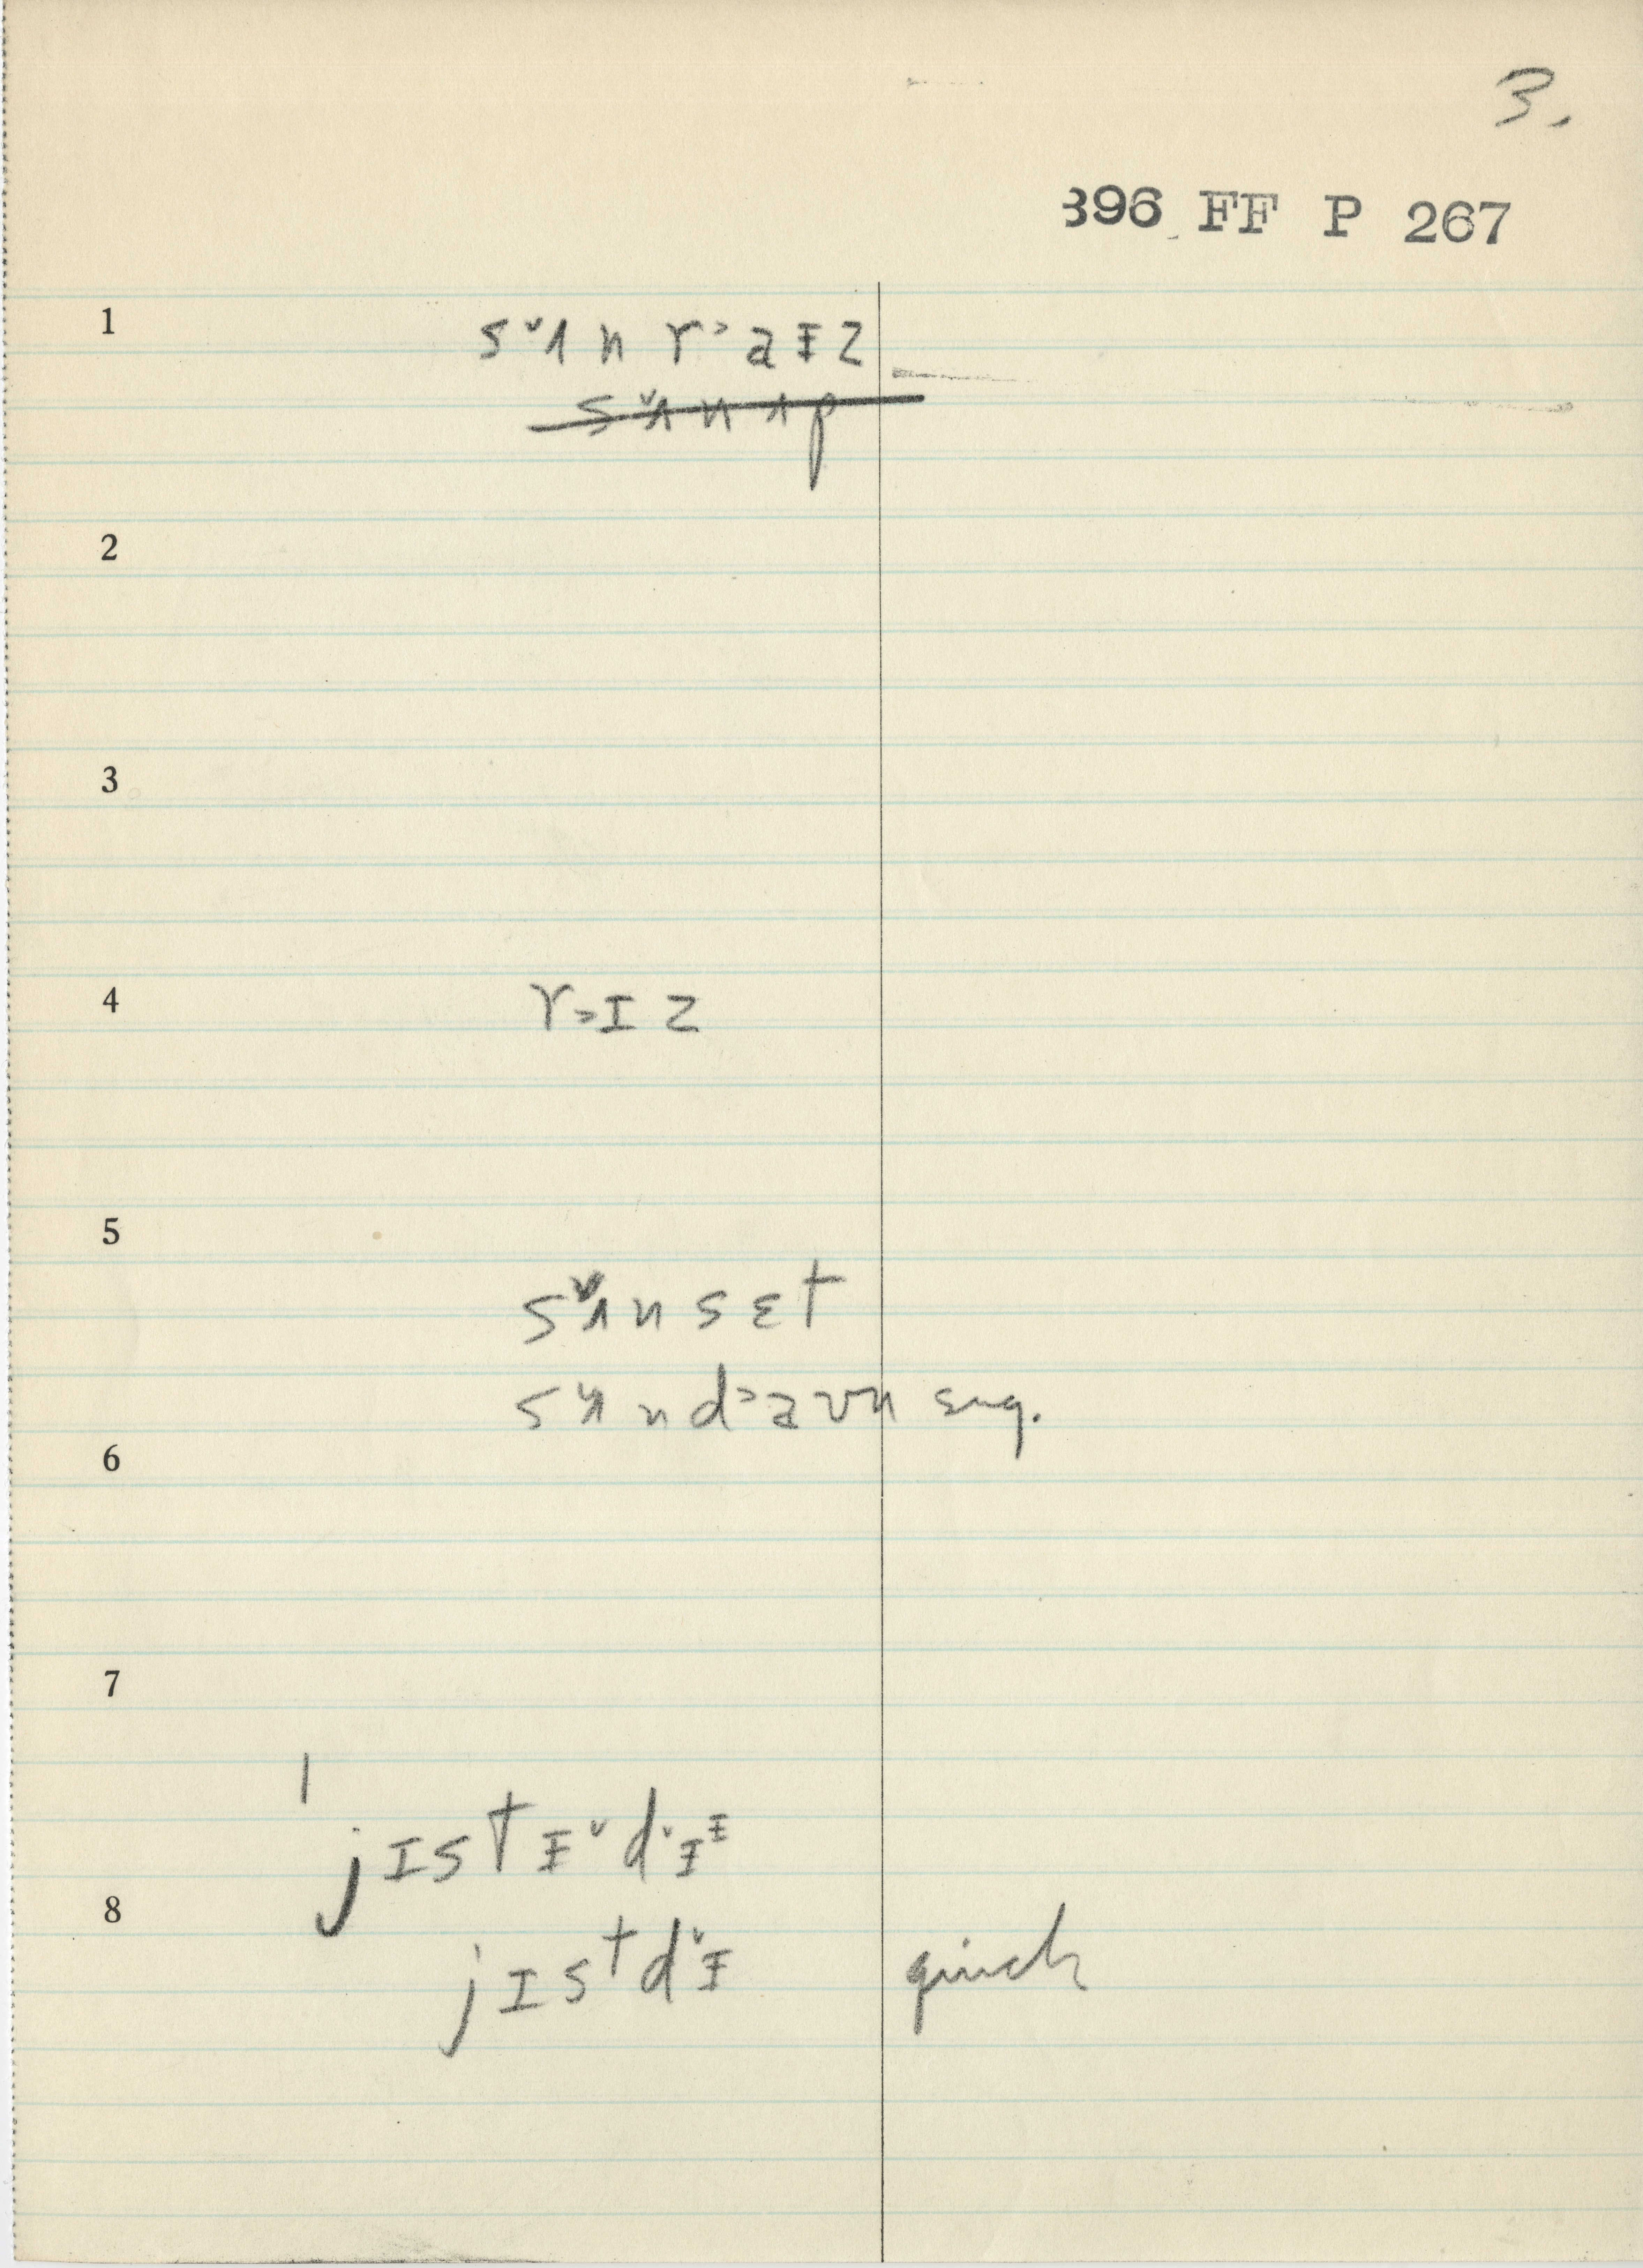 3.
396 FF P 267
1
s˅ʌn r˃aɪz
s˅ʌnʌp
2
3
4
r˃ɪz
5
s˅ʌnsɛt
s˅ʌnd˃aʊn sug.
6
7
ˈjɪstɪ˅d˅ɪᶦ
8
jɪstd˅ɪ quick